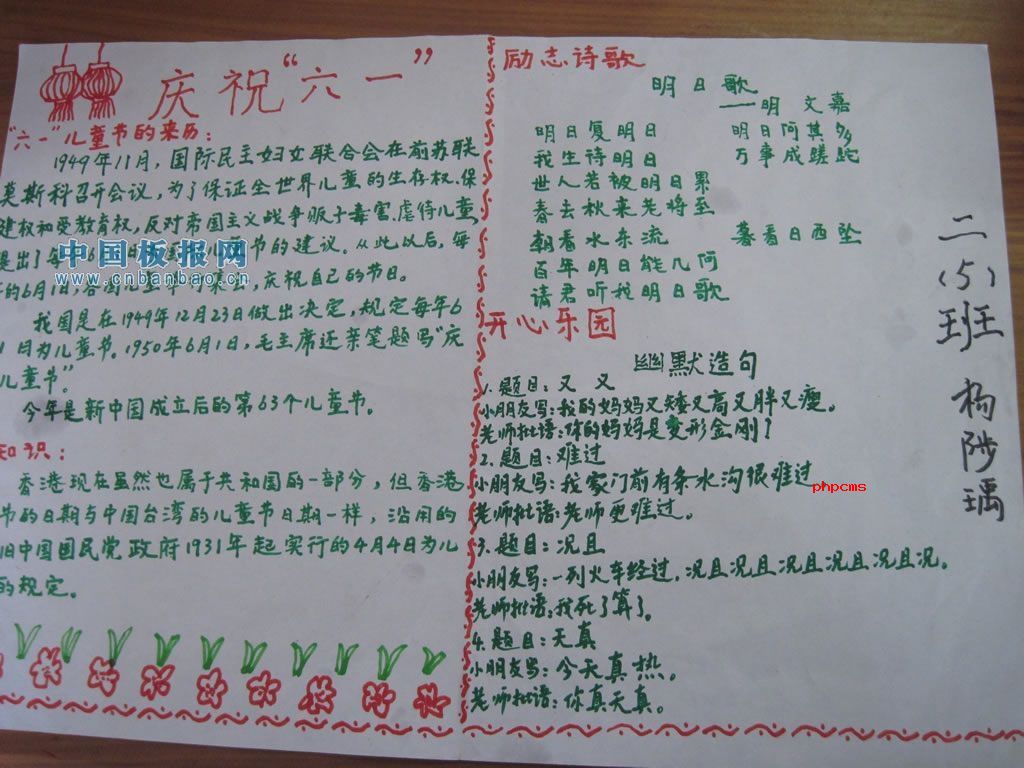 庆祝“六一”
“六一”儿童节的来历:
1949年11月,国际民主妇女联合会在前苏联
莫斯科召开会议,为了保证全世界儿童的生存权.保
健权和受教育权,反对帝国主义战争贩子毒害.虐待儿童,
提出了每 6 节的建议。从此以后,每
的6月1日,各国儿童 集会,庆祝自己的节日。
我国是在1949年12月23日做出决定,规定每年6
1日为儿童节。1950年6月1,毛主席还亲笔题写“庆
儿童节”。
今年是新中国成立后的第63个儿童节。
知识:
香港现在虽然也属于共和国的一部分,但香港
节的日期与中国台湾的儿童节日期一样,沿用的
旧中国国民党政府1931年起实行的4月4日为儿
的规定。
中国板报网
www.cnbanbao.cn
励志诗歌
明日歌
——明 文嘉
明日复明日 明日何其多
我生诗明日 万事成蹉跎
世人若被明日累
春去秋来老将至
朝看水东流 暮看日西坠
百年明日能几何
请君听我明日歌
开心乐园
幽默造句
1.题目:又 又
小朋友写:我的妈妈又矮又高又胖又瘦。
老师批语:你的妈妈是变形金刚?
2.题目:难过
小朋友写:我家门前有条水沟很难过
phpcms
老师批语:老师更难过。
3.题目:况且
小朋友写:一列火车经过,况且况且况且况且况且况。
老师批语:我死了算了。
4.题目:天真
小朋友写:今天真热。
老师批语:你真天真。
二(5)班 杨陟瑀